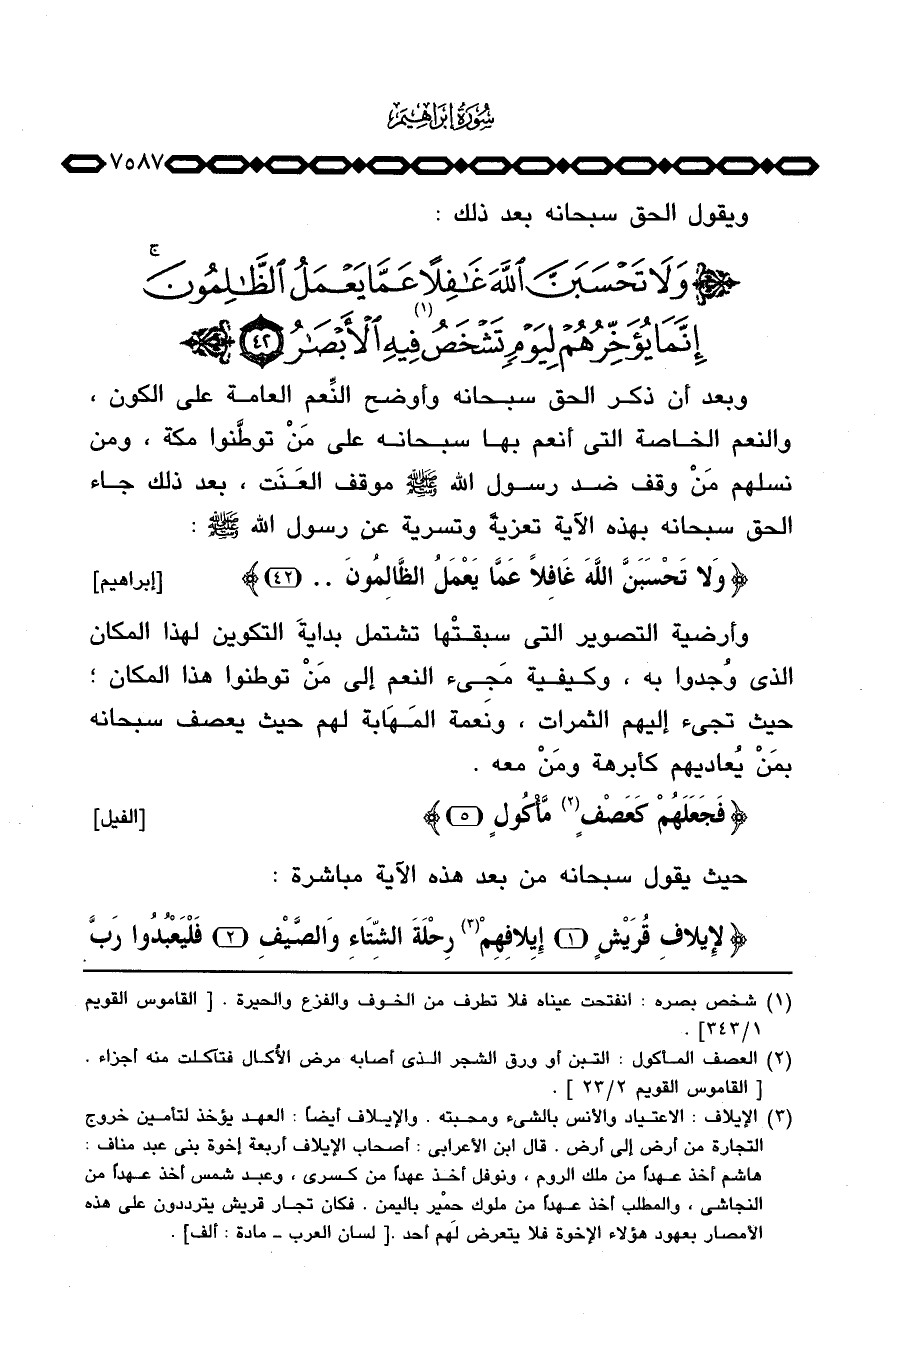 سُورَةُ إِبْرَاهِيمَ
٧٥٨٧
ويقول الحق سبحانه بعد ذلك :
﴿ وَلَا تَحْسَبَنَّ ٱللَّهَ غَٰفِلًا عَمَّا يَعْمَلُ ٱلظَّٰلِمُونَ ۚ
إِنَّمَا يُؤَخِّرُهُمْ لِيَوْمٍ تَشْخَصُ (١) فِيهِ ٱلْأَبْصَٰرُ ٤٢ ﴾
وبعد أن ذكر الحق سبحانه وأوضح النِّعم العامة على الكون ،
والنعم الخاصة التى أنعم بها سبحانه على مَنْ توطَّنوا مكة ، ومن
نسلهم مَنْ وقف ضد رسول الله ﷺ موقف العَنَت ، بعد ذلك جاء
الحق سبحانه بهذه الآية تعزيةً وتسرية عن رسول الله ﷺ :
﴿ وَلَا تَحْسَبَنَّ اللَّهَ غَافِلاً عَمَّا يَعْمَلُ الظَّالِمُونَ .. (٤٢) ﴾ [إبراهيم]
وأرضية التصوير التى سبقتْها تشتمل بدايةَ التكوين لهذا المكان
الذى وُجدوا به ، وكيفية مَجىء النعم إلى مَنْ توطنوا هذا المكان ؛
حيث تجىء إليهم الثمرات ، ونعمة المَهَابة لهم حيث يعصف سبحانه
بمَنْ يُعاديهم كأبرهة ومَنْ معه .
﴿ فَجَعَلَهُمْ كَعَصْفٍ (٢) مَّأْكُولٍ (٥) ﴾ [الفيل]
حيث يقول سبحانه من بعد هذه الآية مباشرة :
﴿ لِإِيلافِ قُرَيْشٍ (١) إِيلافِهِمْ (٣) رِحْلَةَ الشِّتَاءِ وَالصَّيْفِ (٢) فَلْيَعْبُدُوا رَبَّ
(١) شخص بصره : انفتحت عيناه فلا تطرف من الخوف والفزع والحيرة . [ القاموس القويم
٣٤٣/١] .
(٢) العصف المأكول : التبن أو ورق الشجر الذى أصابه مرض الأُكال فتآكلت منه أجزاء .
[ القاموس القويم ٢٣/٢ ] .
(٣) الإيلاف : الاعتياد والأنس بالشىء ومحبته . والإيلاف أيضاً : العهد يؤخذ لتأمين خروج
التجارة من أرض إلى أرض . قال ابن الأعرابى : أصحاب الإيلاف أربعة إخوة بنى عبد مناف :
هاشم أخذ عهداً من ملك الروم ، ونوفل أخذ عهداً من كسرى ، وعبد شمس أخذ عهداً من
النجاشى ، والمطلب أخذ عهداً من ملوك حمْير باليمن . فكان تجار قريش يترددون على هذه
الأمصار بعهود هؤلاء الإخوة فلا يتعرض لهم أحد .[ لسان العرب – مادة : ألف] .